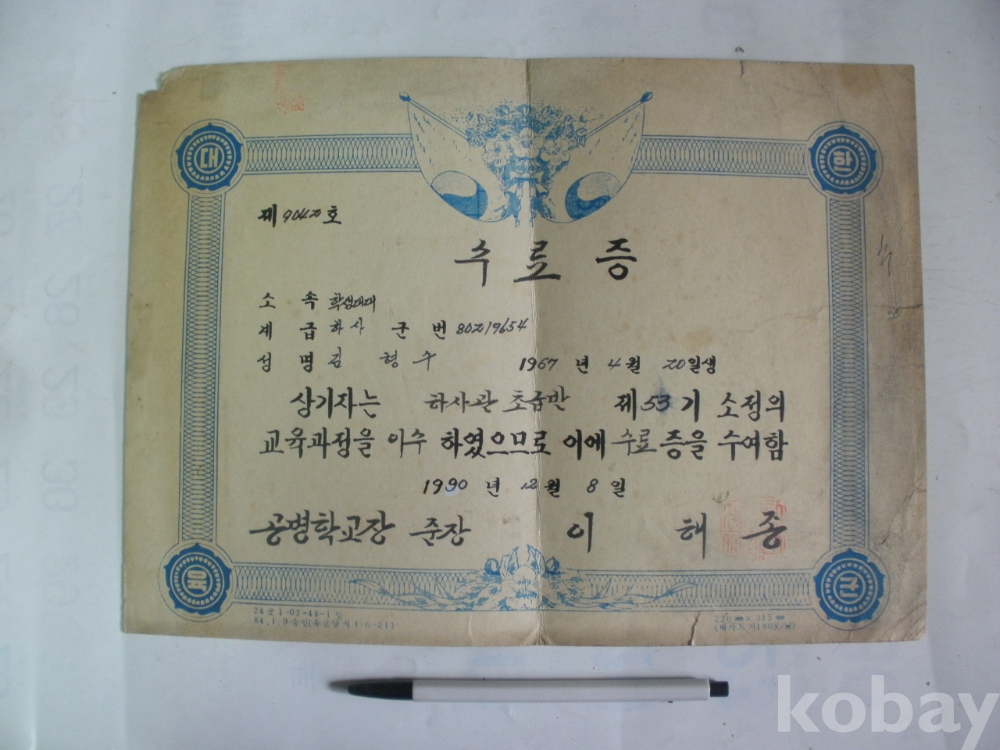 대 한
제 9042 호
수 료 증
소 속 학생대대
계 급 하사 군 번 80219654
성 명 김 형 수 1967 년 4 월 20 일생
상기자는 하사관 초급반 제 53 기 소정의
교육과정을 이수 하였으므로 이에 수료 증을 수여함
1990 년 12 월 8 일
공병학교장 준장 이 해 종
육 군
24 군 1-03-44-1 일
84. 1. 9 승인
kobay